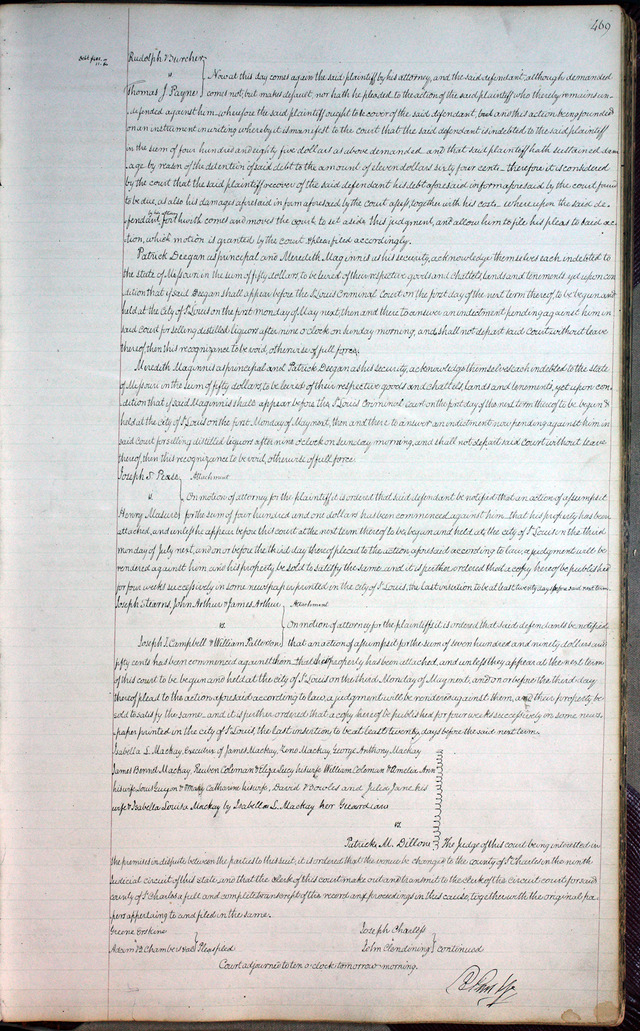 469
Rudolph Burcher
vs
Now at this day comes again the said plaintiff by his attorney, and the said defendant although demanded
Thomas J Payne comes not, but makes default, nor hath he pleaded to the action of the said plaintiff who thereby remains un-
defended against him, wherefore the said plaintiff ought to recover of the said defendant, and this action being founded
on an instrument in writing whereby it is manifest to the court that the said defendant is indebted to the said plaintiff
in the sum of four hundred and eighty five dollars as above demanded and that said plaintiff hath sustained dam-
age by reason of the detention of said debt to the amount of eleven dollars sixty four cents, therefore it is considered
by the court that the said plaintiff recover of the said defendant his debt aforesaid in form aforesaid by the court found
to be due, as also his damages aforesaid in form aforesaid by the court assessed, together with his costs whereupon the said de-
fendant forthwith comes and moves the court to set aside this judgment, and allow him to file his pleas to said ac-
tion, which motion is granted by the court & pleas filed accordingly.
Patrick Deegan as principal and Meredith Maginnis as his security, acknowledge themselves each indebted to
the state of Missouri in the sum of fifty dollars, to be levied of their respective goods and chattels, lands and tenements, yet upon con-
dition that if said Deegan shall appear before the St Louis Criminal Court on the first day of the next term thereof, to be begun and
held at the city of St Louis on the first monday of May next, then and there to answer an indictment pending against him in
said court for selling distilled liquor after nine o'clock on sunday morning, and shall not depart said court without leave
thereof, then this recognizance to be void, otherwise of full force.
Meredith Maginnis as principal and Patrick Deegan as his security, acknowledge themselves each indebted to the state
of Missouri in the sum of fifty dollars, to be levied of their respective goods and chattels, lands and tenements, yet upon con-
dition that if said Maginnis shall appear before the St Louis Criminal court on the first day of the next term thereof to be begun &
held at the city of St Louis on the first Monday of May next, then and there to answer an indictment now pending against him in
said court for selling distilled liquor after nine o clock on sunday morning, and shall not depart said Court without leave
thereof, then this recognizance to be void, otherwise of full force.
Joseph S Pease Attachment
vs
On motion of attorney for the plaintiff it is ordered that said defendant be notified that an action of assumpsit
Henry Masure for the sum of four hundred and one dollars has been commenced against him, that his property has been
attached, and unless he appear before this court at the next term thereof to be begun and held at the city of St Louis on the third
monday of July next, and on or before the third day thereof plead to the action aforesaid according to law, a judgment will be
rendered against him and his property be sold to satisfy the same, and it is further ordered that a copy hereof be published
for four weeks successively in some newspaper printed in the city of St Louis, the last insertion to be at least twenty days before said next term
Joseph Stearns, John Arthur & James Arthur Attachment
vs
On motion of attorney for the plaintiffs it is ordered that said defendants be notified
Joseph J Campbell & William Patterson that an action of assumpsit for the sum of seven hundred and ninety dollars and
fifty cents has been commenced against them, that their property has been attached, and unless they appear at the next term
of this court to be begun and held at the city of St Louis on the third Monday of May next, and on or before the third day
thereof plead to the action aforesaid according to law, a judgment will be rendered against them, and their property be
sold to satisfy the same, and it is further ordered that a copy hereof be published for four weeks successively in some news-
paper printed in the city of St Louis, the last insertion to be at least twenty days before the said next term.
Isabella L. Mackay, Executrix of James Mackay, Zeno Mackay, George Anthony Mackay
James Bennet Mackay, Reuben Coleman & Eliza Lucy his wife William Coleman & Amelia Ann
his wife, Louis Guyon & Mary Catharine his wife, David Bowles and Julia Jane his
wife & Isabella Louisa Mackay by Isabella L. Mackay her Guardian
vs
Patrick M. Dillon The Judge of this court being interested in
the premises in dispute between the parties to this suit, it is ordered that the venue be changed to the county of St Charles in the ninth
Judicial circuit of this state, and that the clerk of this court make out and transmit to the clerk of the circuit court for said
county of St Charles a full and complete transcript of the record and proceedings in this cause, together with the original pa-
pers appertaining to and filed in the same.
Greene Erskine Joseph Charless
Adam B Chambers et al Pleas filed John Clendening continued
Court adjourned to ten o clock tomorrow morning.